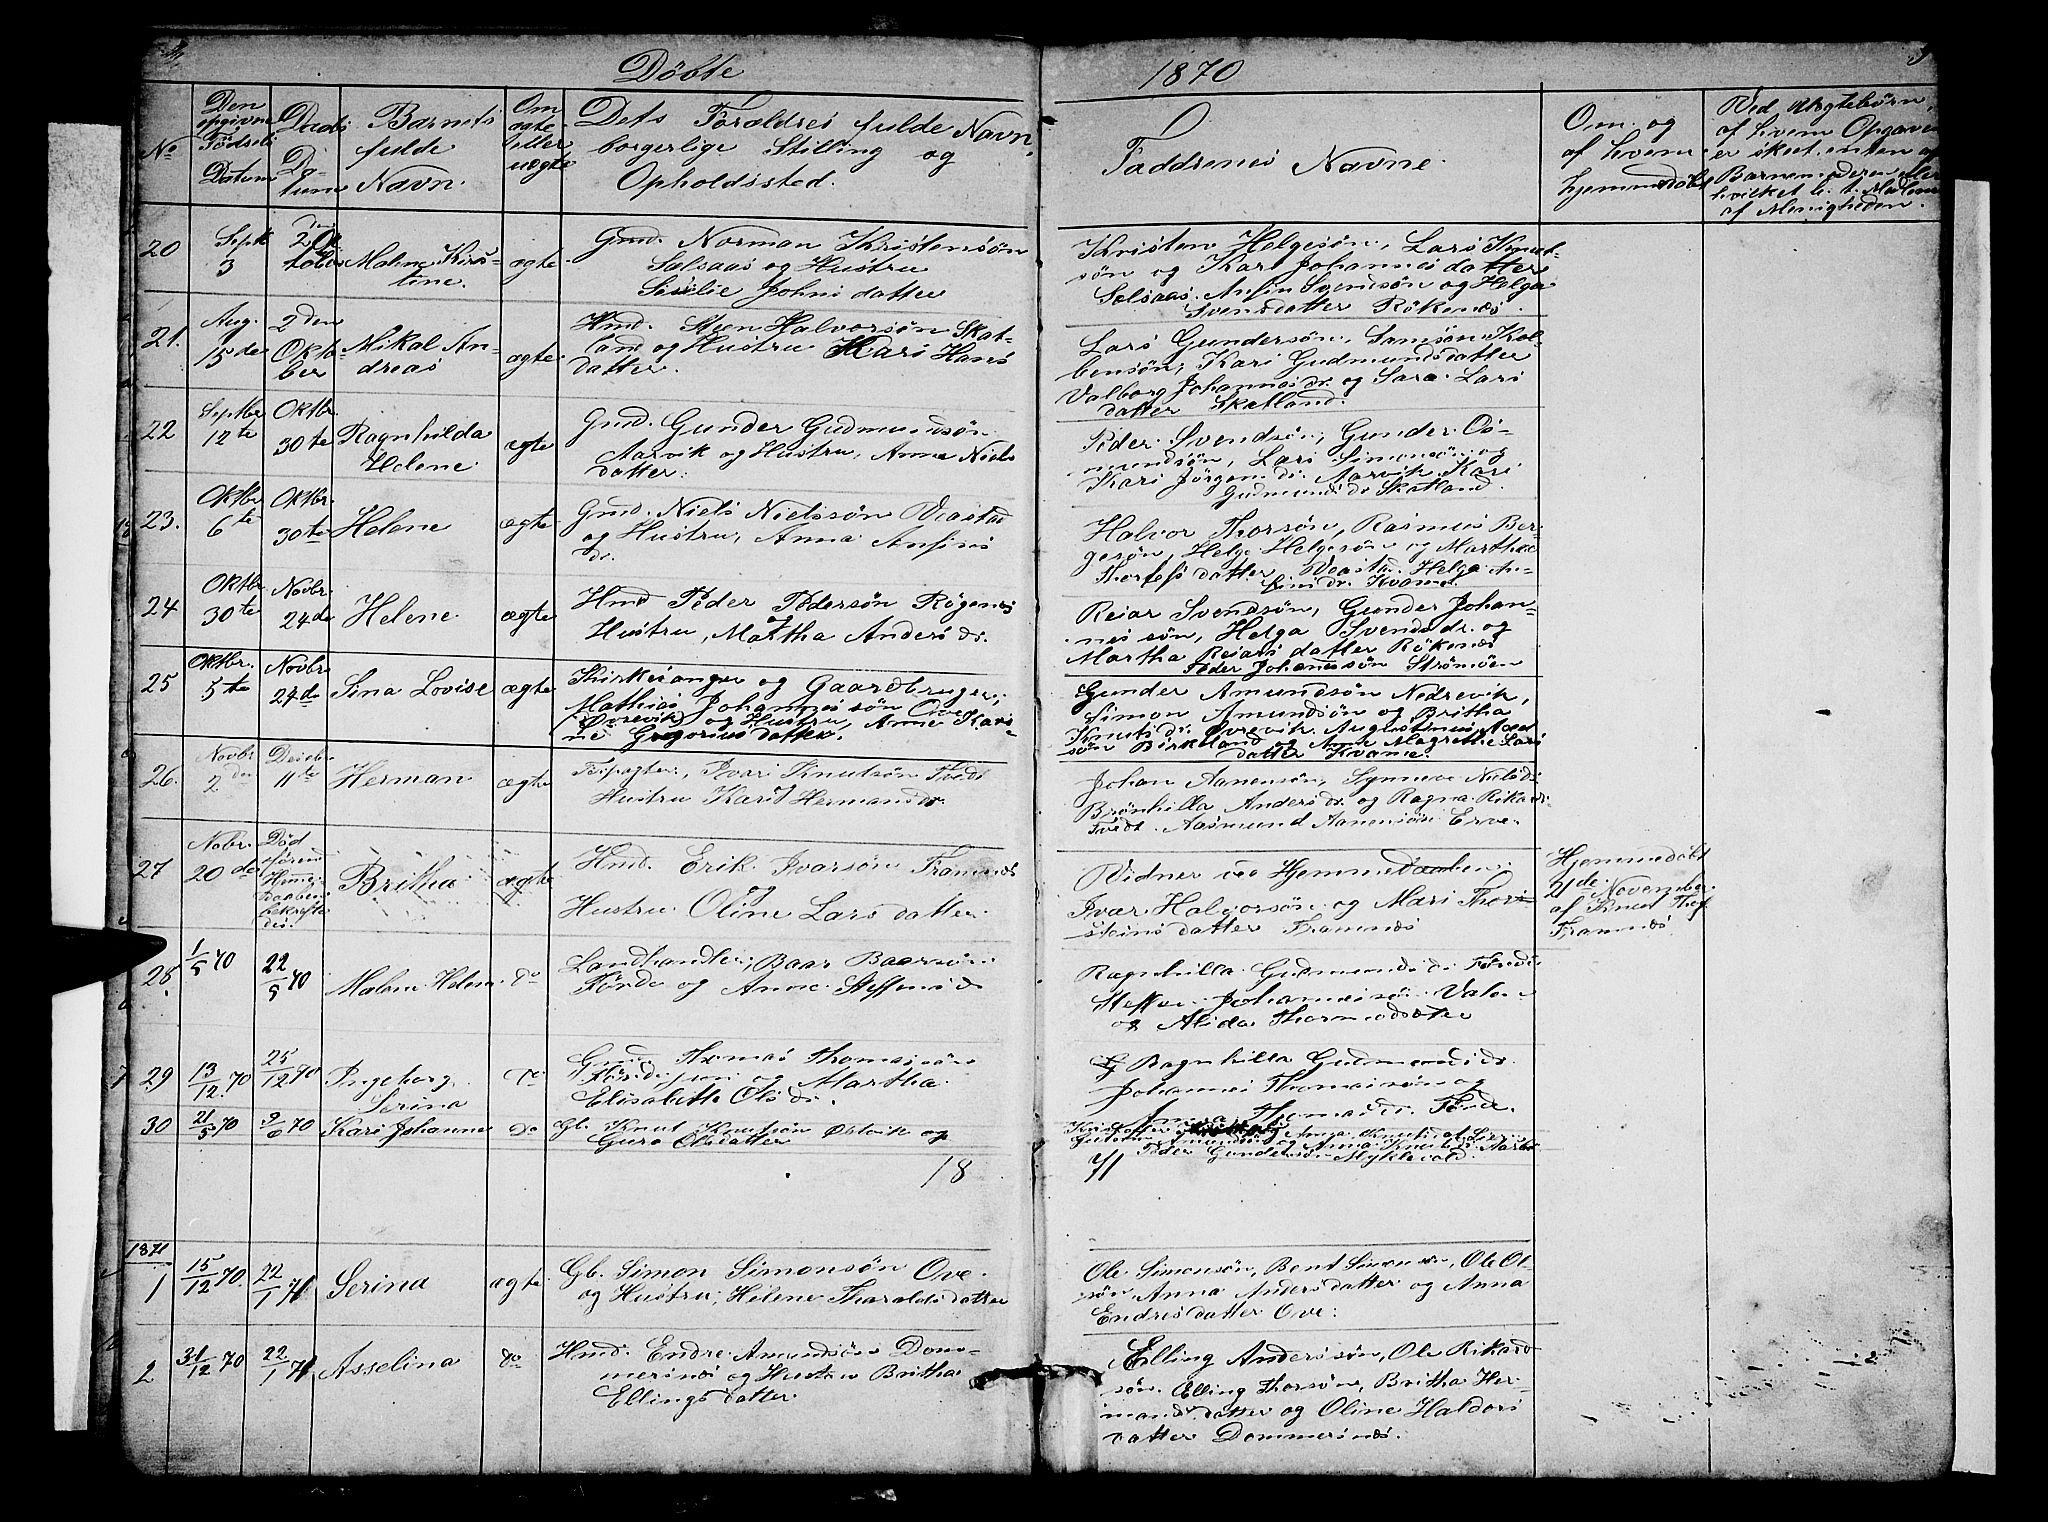 Döbte 1870
No
Den opgivne Födsels Datum
Daabs Datum
Barnets fulde Navn.
Om ægte eller uægte
Dets Forældres fulde Navn, borgerlige Stilling og Opholdssted.
Faddrenes Navne.
Om og af hvem hjemmedöbt
Ved uægtebörn, af hvem Opgaven er skeet enten af Barnemoderen eller hvilket h. t. Medlem af Menigheden.
20 Septr 3 Malene Kirs-
tine. ægte. Gmd. Norman Kristensön
Sælsaas og Hustru
Sesilie Johns datter
Kristen Helgesön, Lars Knut-
sön og Kari Johannesdatter
Sælsaas. Anfin Svendsön og Helga
Svensdatter Rökenæs.
21. Aug. 15de 2den Oktober Mikal An-
dreas ægte. Hmd. Steen Halvorsön Skat-
land og Hustru Kari Hans
datter.
Lars Gundersön, Samson Kol-
bensön, Kari Gudmundsdatter
Valborg Johannesdr. og Sara Lars
datter Skatland.
22 Septbr 12te Oktbr. 30te Ragnhilda
Helene ægte Gmd. Gunder Gudmundsön
Aarvik og Hustru, Anna Niels
datter.
Peder Svendsön, Gunder Os-
mundsön, Lars Simonsön og
Kari Jörgensdr. Aarvik. Kari
Gudmundsdr Skatland.
23. Oktbr 6te Oktbr. 30te Helene ægte Gmd. Niels Nielssön Vaastad
og Hustru, Anna Anfins
dr.
Halvor Thorsön, Rasmus Ber-
gesön, Helge Helgesön og Marthe
Thorlefsdatter Vaastad. Helga An-
finsdr. Kvame.
24 Oktbr. 30te Novbr. 24de Helene ægte Hmd Peder Pedersön Rögenes
Hustru, Martha Andersdr.
Reiar Svendsön, Gunder Johan-
nessön, Helga Svendsdr. og
Martha Reiarsdatter Rökenæs
Peder Johannessön Strömöen
25 Oktbr. 5te Novbr. 24de Sina Lovise ægte Kirkesanger og Gaardbruger,
Mathias Johannessön Ove
(Övrevik) og Hustru, Anne Kari-
ne Gregorius datter.
Gunder Amundsön Nedrevik,
Simon Amundsön og Britha
Knutsdr. Övrevik. Augustinus Aad-
sön Birkeland og Anne Magrethe Lars
datter Kvame.
26. Novbr. 2den Desebr 11te Herman ægte Ivars Knutsön Tvedt
Hustru Kari Hermansdr.
Johan Aanensön, Synneve Nielsdr
Brönhilla Andersdr. og Ragna Rikards
Tvedt. Aasmund Aanensön Erve.
27 Nobr. 20de Död
Britha ægte Hmd. Erik Ivarsön Framnæs
og
Hustru Oline Lars datter.
Vidner ved Hjemmedaaben:
Ivar Halvorsön og Mari Thor-
steinsdatter Framnæs
Hjemmedöbt
21de November
af Knut Thof
Framnæs
28. 1/5 70 22/5 70 Malene Helene do Landhandler, Baar Baarsön
Förde og Anne Steffensdr
Ragnhilla Gudmundsdr. Förde
Steffen Johannessön Valen
og Alida Thormodsdtr
29 13/12 70 25/12 70 Ingeborg
Serina do Gmd. Thomas Thomassön
Förde jun og Martha
Elisabeth Olsdr.
Ragnhilla Gudmundsdr.
Johannes Thomassön og
Anna Thomasdr. Förde.
30 21/5 70 9/6 70 Kari Johanne do Gb. Knut Knutsön Ölvik og
Guro Olsdatter
Peder Gundersön Myklevold
18 71
1871
1 15/12 70. 22/1 71 Serina ægte Gb. Simon Simonsön Ove.
og Hustru, Helene Tharaldsdatter
Ole Simonsön, Bent Simonsön, Ole Ol-
sön Anna Andersdatter og Anna
Endresdatter Ove.
2 31/12 70 22/1 71 Asselina do Hmd. Endre Amundsön Dom-
mersnæs og Hustru Britha
Ellingsdatter
Elling Anderssön, Ole Rikard
sön. Elling Thorsön, Britha Her-
mandsdatter og Oline Haldors
datter Dommersnæs.